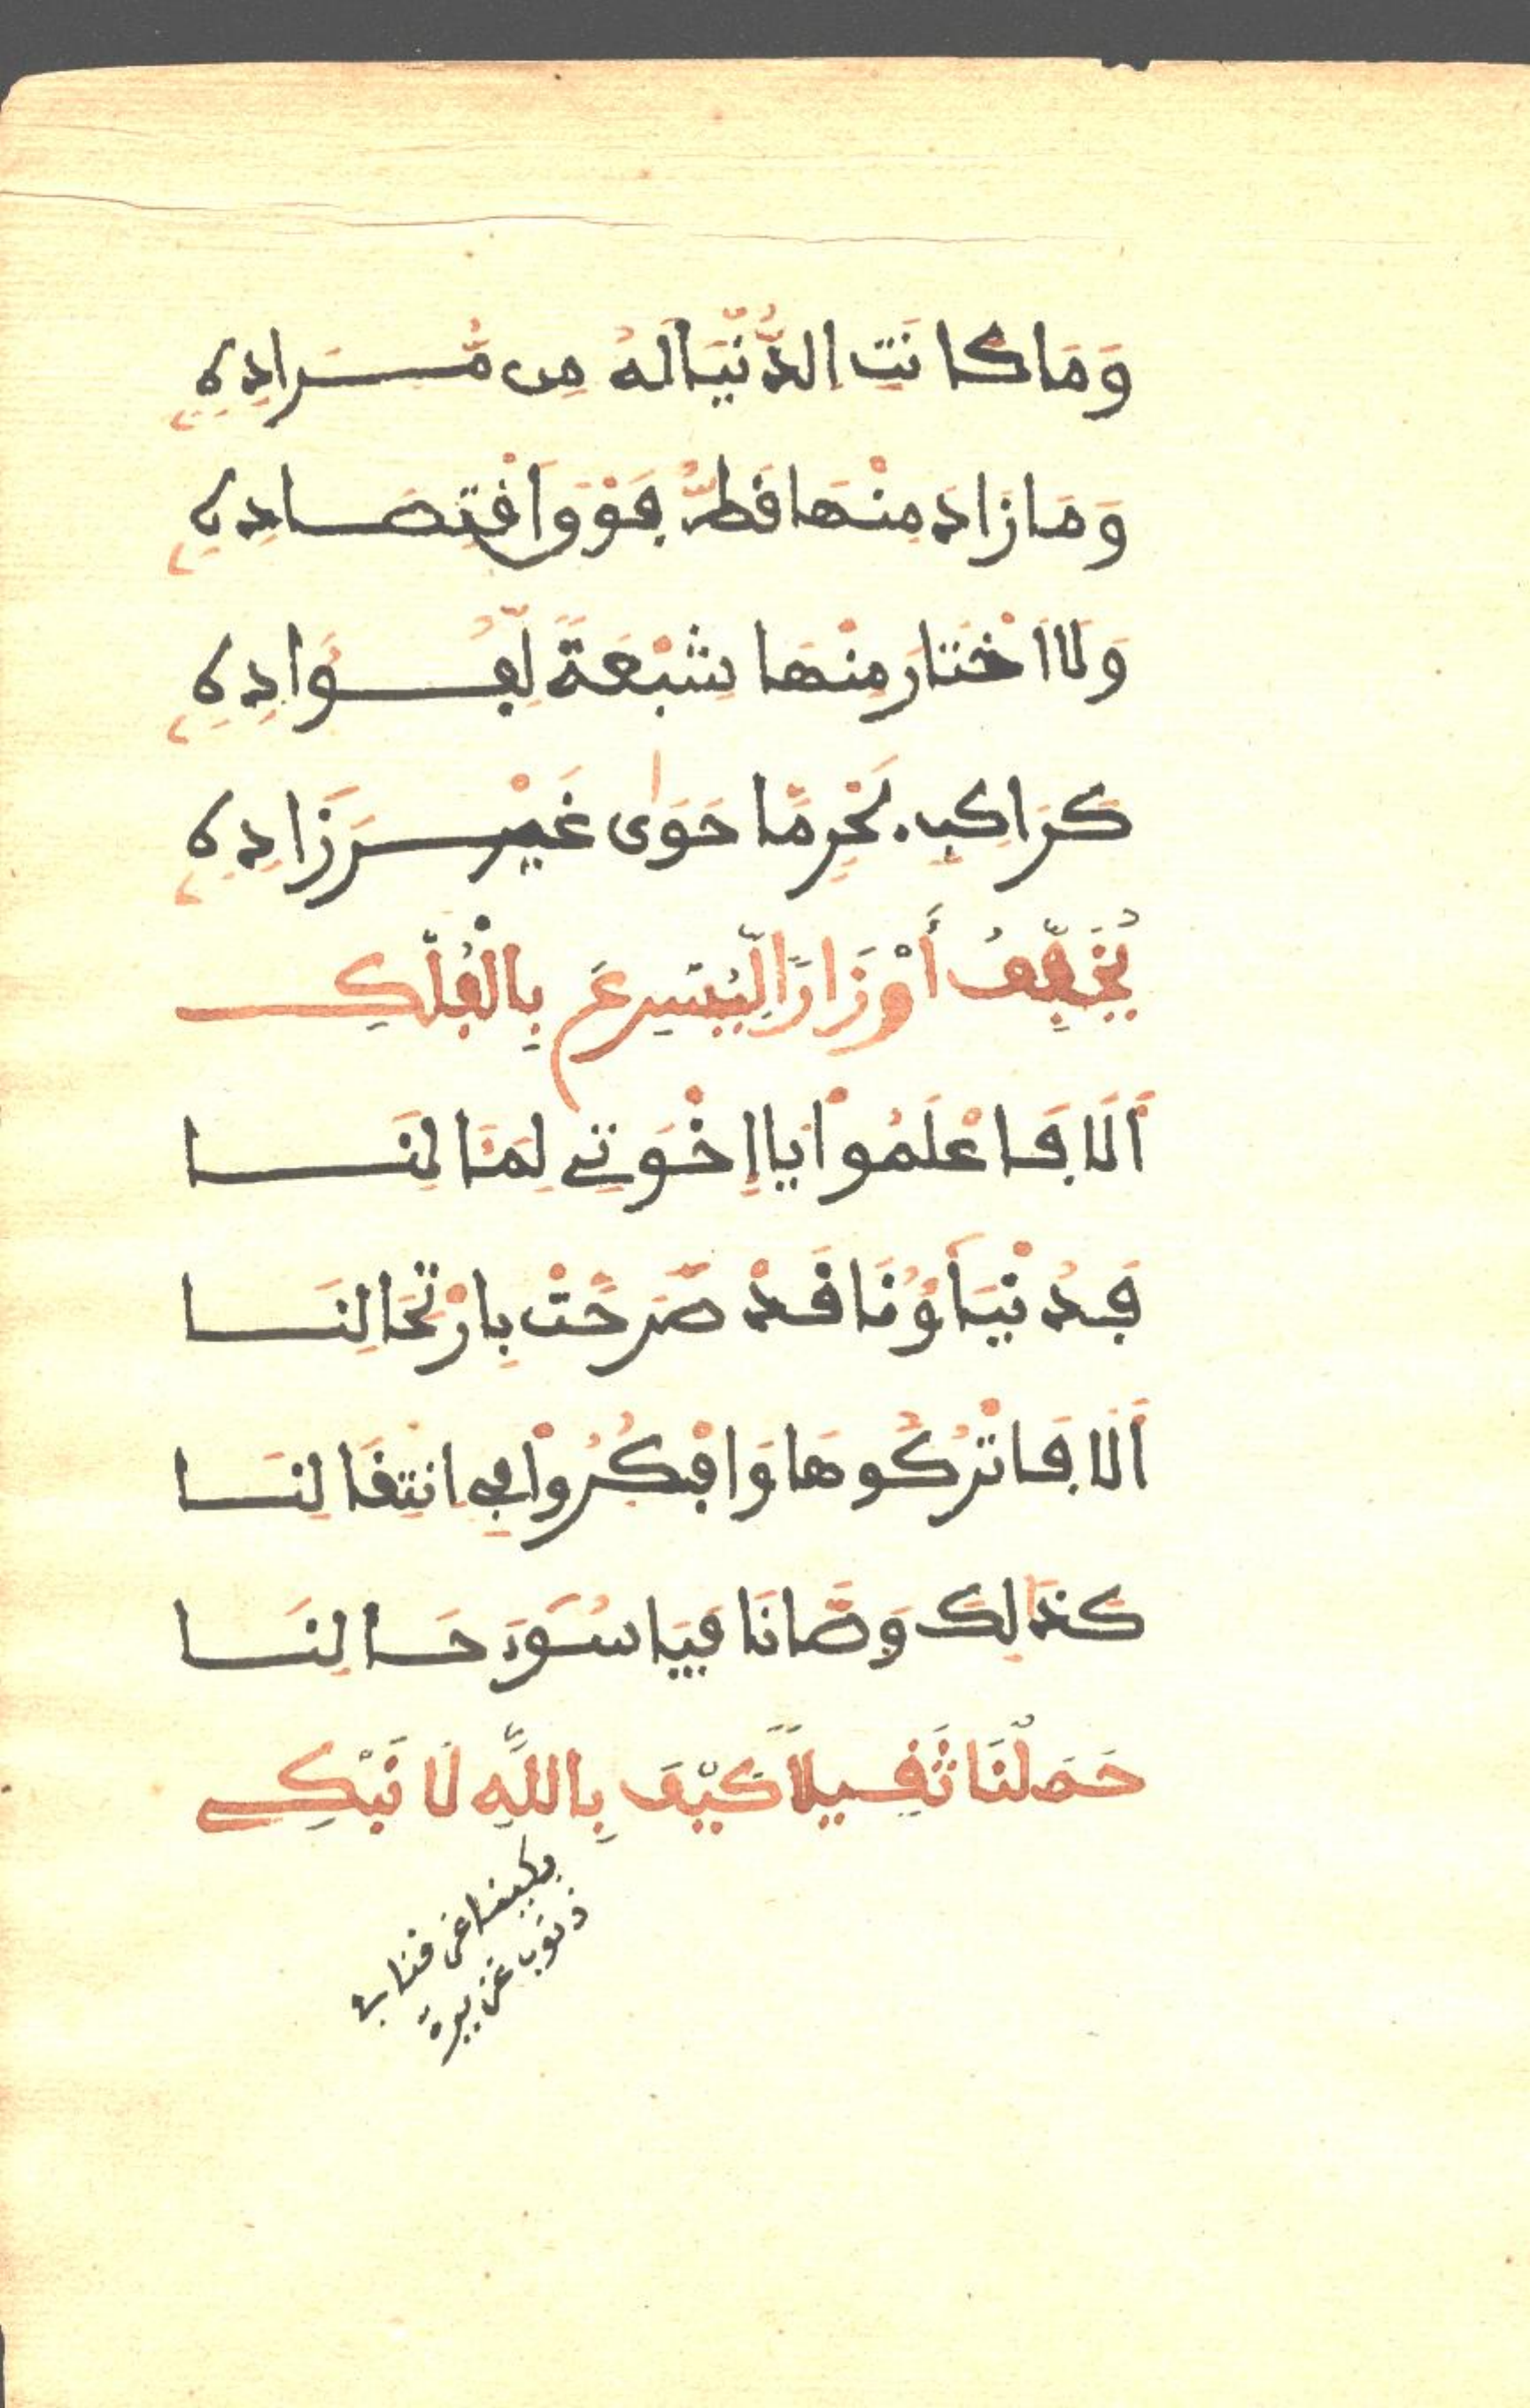 وَمَا كَانَتِ الدُّنْيَا لَهُ مِن مُّرَادِهِ
وَمَا زَادَ مِنْهَا قَطُّ فَوْقَ اقْتِصَادِهِ
وَلَا اخْتَارَ مِنْهَا شِبْعَةً لِّفُؤَادِهِ
كَرَاكِبِ بَحْرٍ مَّا حَوَى غَيْرَ زَادِهِ
يُخَفِّفُ أَوْزَارًا لِّيُسْرِعَ بِالْفُلْكِ
أَلَا فَاعْلَمُوا يَا إِخْوَتِي لِمَنَالِنَا
فَدُنْيَاؤُنَا قَدْ صَرَّحَتْ بِارْتِحَالِنَا
أَلَا فَاتْرُكُوهَا وَافْكُرُوا فِي انْتِقَالِنَا
كَذَالِكَ وَصَّانَا فَيَا سُوءَ حَالِنَا
حَمَلْنَا ثَقِيلاً كَيْفَ بِاللَّهِ لَا نَبْكِي
بكينا عن
ذنوب غزيرة